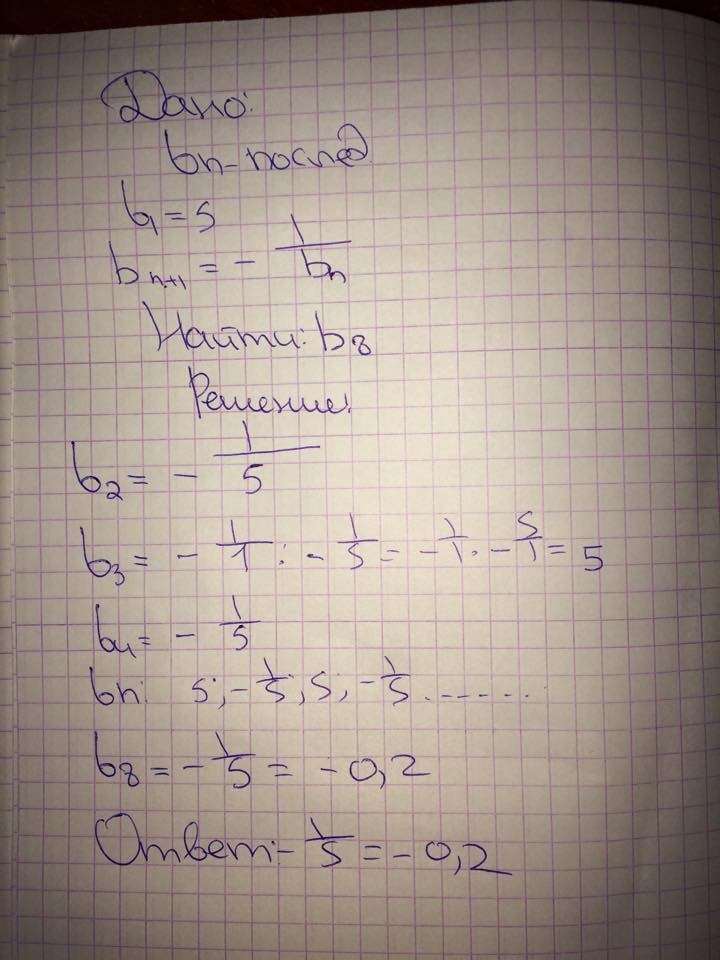 Дано:
bn - послед
b1 = 5
bn+1 = - 1/bn
Найти: b8
Решение:
b2 = - 1/5
b3 = - 1/1 : - 1/5 = - 1/1 · - 5/1 = 5
b4 = - 1/5
bn: 5; - 1/5; 5; - 1/5 .......
b8 = - 1/5 = - 0,2
Ответ: - 1/5 = - 0,2